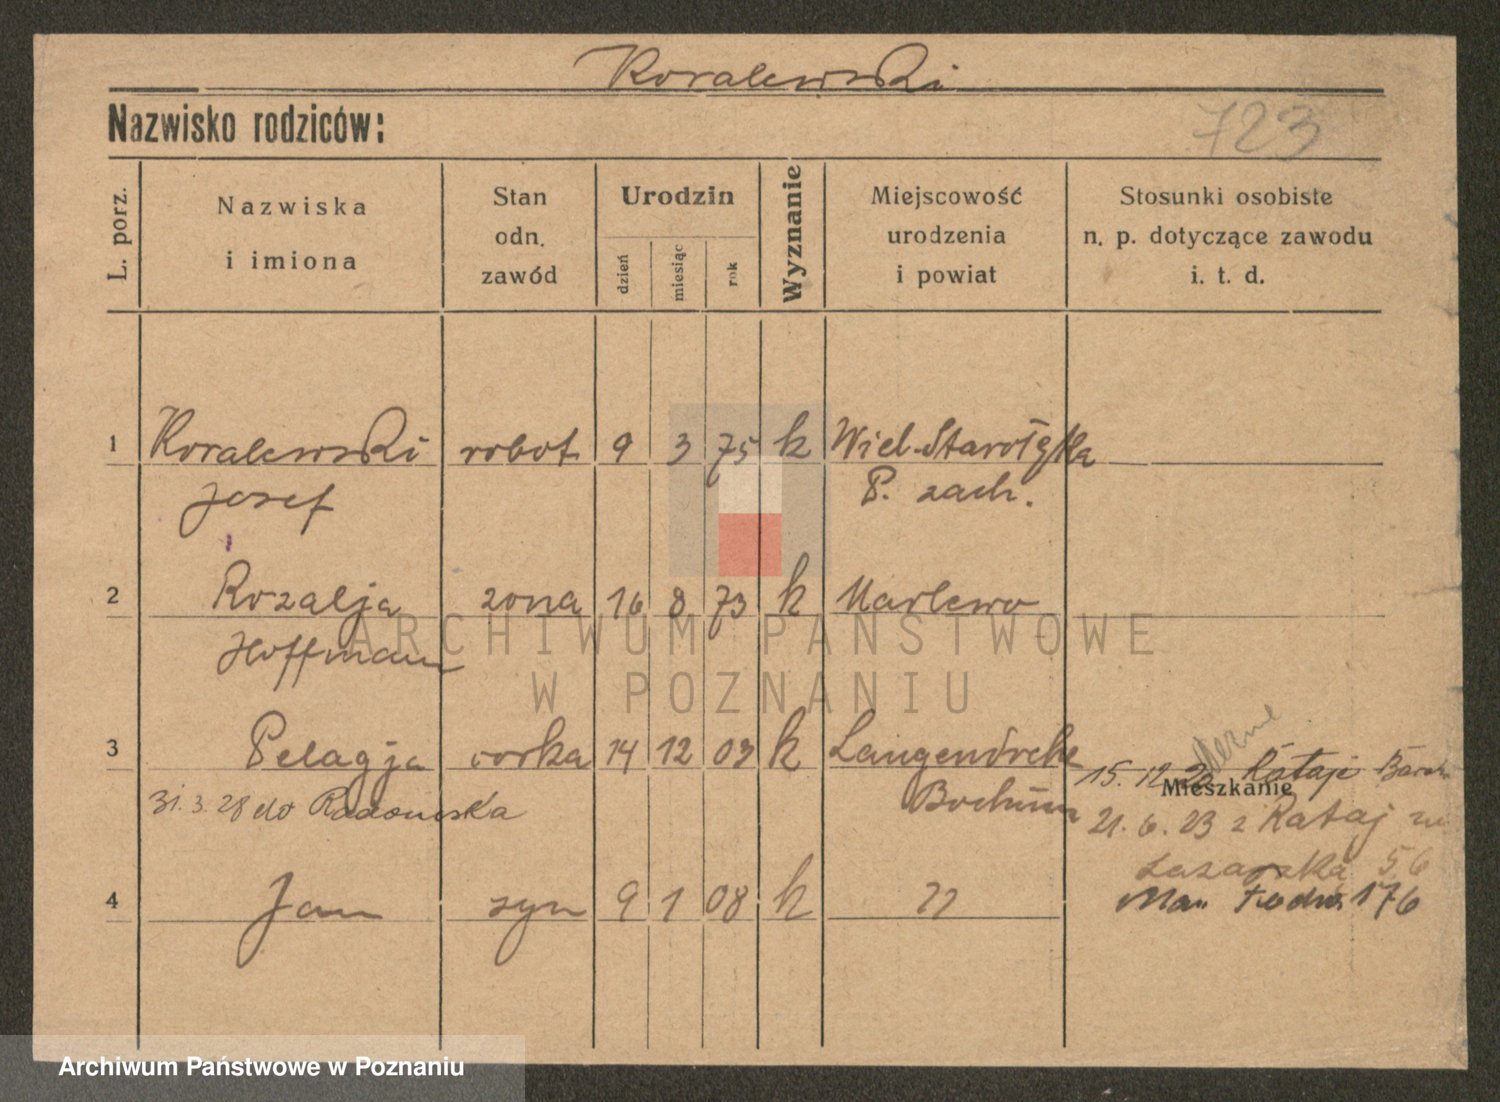 Koralewski
Nazwisko rodziców:
723
L. porz.
Nazwiska
i imiona
Stan
odn.
zawód
Urodzin
dzień
miesiąc
rok
Wyznanie
Miejscowość
urodzenia
i powiat
Stosunki osobiste
n. p. dotyczące zawodu
i. t. d.
1 Koralewski robot 9 3 75 k Wiel. Starołęka
Josef P. zach.
2 Rozalja zona 16 8 73 k Marlewo
Hoffmann
ARCHIWUM PAŃSTWOWE
W POZNANIU
3 Pelagja corka 14 12 03 k Langendreke
15. 12 20 Rataje
Mieszkanie
31. 3. 28 do Radomska Bochum
21. 6. 23 z Rataj
Łazarska 56
4 Jan syn 9 1 08 k "
176
Archiwum Państwowe w Poznaniu